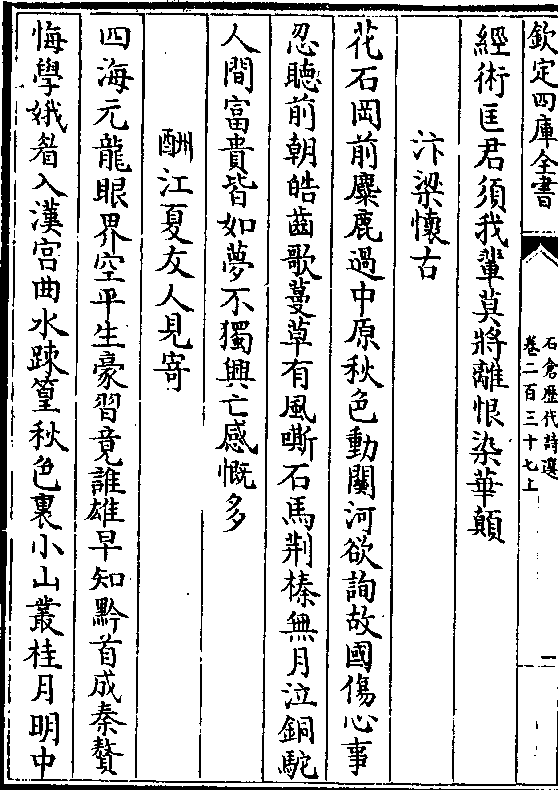 欽定四庫全書
石倉歴代詩選
卷二百三十七上
一
經術匡君須我輩莫將離恨染華顛
汴梁懷古
花石岡前麋鹿過中原秋色動關河欲詢故國傷心事
忍聽前朝皓齒歌蔓草有風嘶石馬荆榛無月泣銅駝
人間富貴皆如夢不獨興亡感慨多
酬江夏友人見寄
四海元龍眼界空平生豪習竟誰雄早知黔首成秦贅
悔學娥睂入漢宫曲水踈篁秋色裏小山叢桂月明中